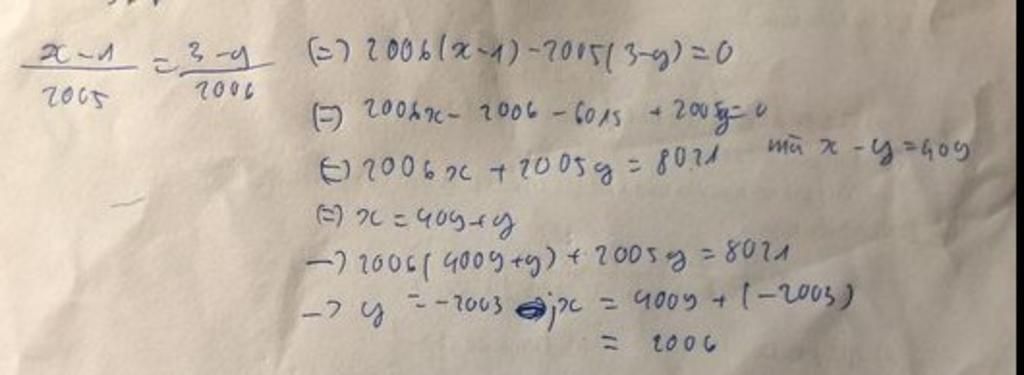 x-1/2005 = 3-y/2006 (=) 2006(x-1)-2005(3-y)=0
(=) 2006x- 2006 - 6015 + 2005y=0
(=) 2006x + 2005y = 8021 mà x - y = 4009
(=) x = 4009+y
-) 2006(4009+y) + 2005y = 8021
-> y = -2003 ; x = 4009 + (-2003)
= 2006